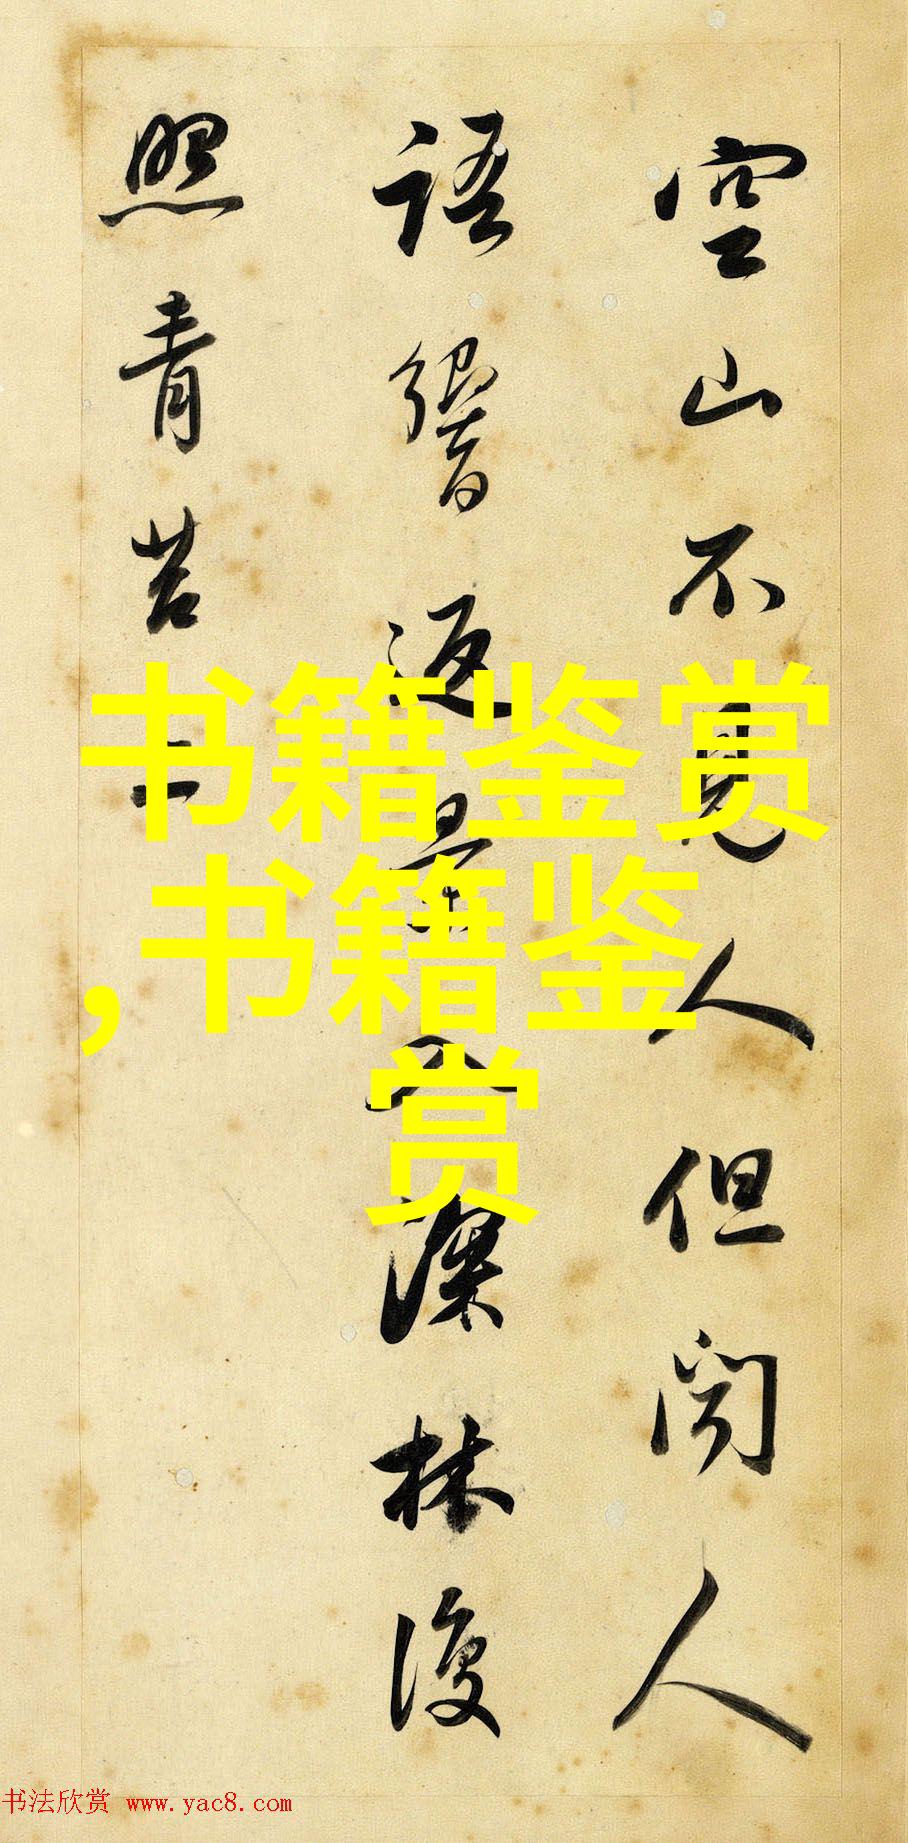 空山不見人但聞人
語響返景入深林復
照青苔上
书籍鉴赏
,书籍鉴
赏
书法欣赏 www.yac8.com